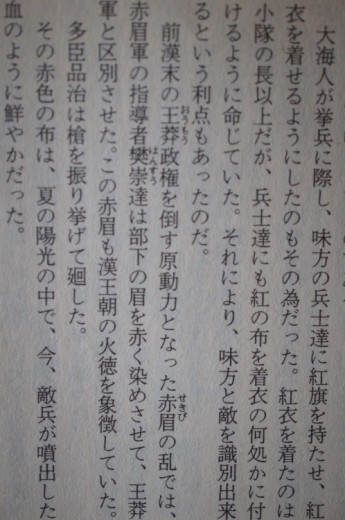 大海人が挙兵に際し、味方の兵士達に紅旗を持たせ、紅
衣を着せるようにしたのもその為だった。紅衣を着たのは
小隊の長以上だが、兵士達にも紅の布を着衣の何処かに付
けるように命じていた。それにより、味方と敵を識別出来
るという利点もあったのだ。
前漢末の王莽政権を倒す原動力となった赤眉の乱では、
赤眉軍の指導者樊崇達は部下の眉を赤く染めさせて、王莽
軍と区別させた。この赤眉も漢王朝の火徳を象徴していた。
多臣品治は槍を振り挙げて廻した。
その赤色の布は、夏の陽光の中で、今、敵兵が噴出した
血のように鮮やかだった。